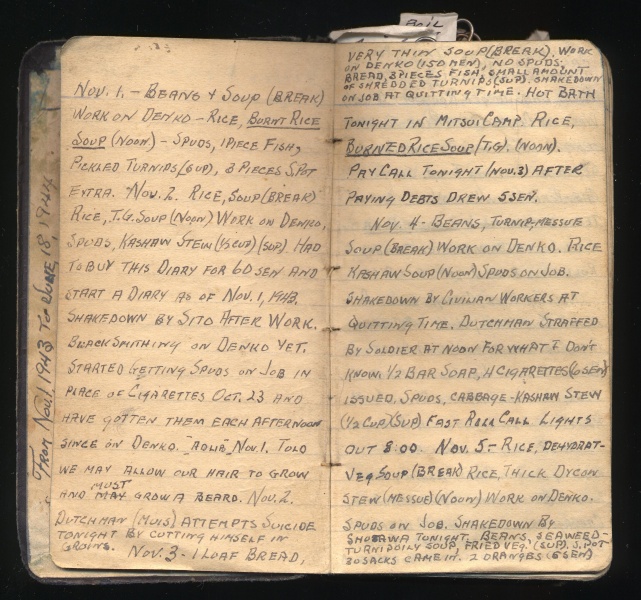 BOIL
FROM NOV. 1 1943 TO JUNE 18 1944
NOV. 1. - BEANS & SOUP (BREAK)
WORK ON DENKO - RICE, BURNT RICE
SOUP (NOON) - SPUDS, 1 PIECE FISH,
PICKLED TURNIPS (SUP), 3 PIECES S.POT
EXTRA. NOV. 2. RICE, SOUP (BREAK)
RICE, T.G. SOUP (NOON) WORK ON DENKO,
SPUDS, KASHAW STEW (1/2 CUP) (SUP). HAD
TO BUY THIS DIARY FOR 60 SEN AND
START A DIARY AS OF NOV. 1, 1943.
SHAKEDOWN BY SITO AFTER WORK.
BLACKSMITHING ON DENKO YET.
STARTED GETTING SPUDS ON JOB IN
PLACE OF CIGARETTES OCT. 23 AND
HAVE GOTTEN THEM EACH AFTERNOON
SINCE ON DENKO. NOV. 1. TOLD
WE MAY ALLOW OUR HAIR TO GROW
AND MAY MUST GROW A BEARD. NOV. 2.
DUTCHMAN (MUIS) ATTEMPTS SUICIDE
TONIGHT BY CUTTING HIMSELF IN
GROINS. NOV. 3 - 1 LOAF BREAD,
VERY THIN SOUP (BREAK). WORK
ON DENKO (150 MEN), NO SPUDS.
BREAD, 3 PIECES FISH, SMALL AMOUNT
OF SHREDDED TURNIPS (SUP). SHAKEDOWN
ON JOB AT QUITTING TIME. HOT BATH
TONIGHT IN MITSUI CAMP. RICE,
BURNED RICE SOUP (T.G). (NOON).
PAY CALL TONIGHT (NOV. 3) AFTER
PAYING DEBTS DREW 5 SEN.
NOV. 4 - BEANS, TURNIP, MESSUE
SOUP (BREAK) WORK ON DENKO. RICE
KASHAW SOUP (NOON) SPUDS ON JOB.
SHAKEDOWN BY CIVILIAN WORKERS AT
QUITTING TIME. DUTCHMAN STRAFFED
BY SOLDIER AT NOON FOR WHAT I DON'T
KNOW. 1/2 BAR SOAP, 4 CIGARETTES (6 SEN)
ISSUED. SPUDS, CABBAGE - KASHAW STEW
(1/2 CUP) (SUP) FAST ROLL CALL LIGHTS
OUT 8:00. NOV. 5 - RICE, DEHYDRAT-
VEG SOUP (BREAK) RICE, THICK DYCON
STEW (MESSUE) (NOON) WORK ON DENKO.
SPUDS ON JOB. SHAKEDOWN BY
TONIGHT. BEANS, SEAWEED -
TURNIP OILY SOUP, FRIED VEG. (SUP). S. POT
30 SACKS CAME IN. 2 ORANGES (5 SEN)